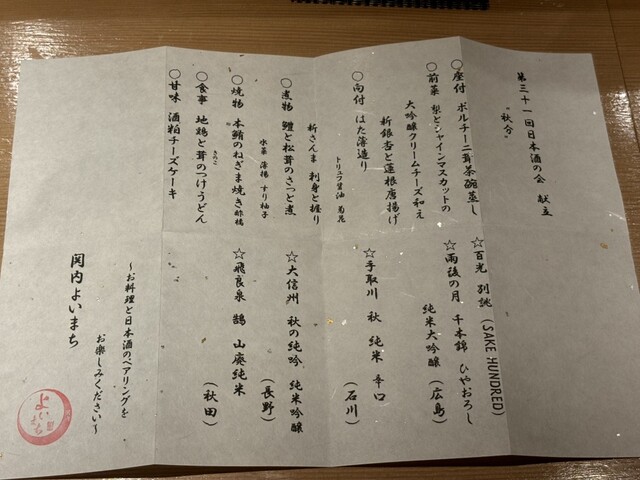 第三十一回日本酒の会 献立
"秋分"
○座付 ポルチーニ茸茶碗蒸し
☆百光 別誂 (SAKE HUNDRED)
○前菜 梨とシャインマスカットの
大吟醸クリームチーズ和え
新銀杏と蓮根唐揚げ
☆雨後の月 千本錦 ひやおろし
純米大吟醸 (広島)
○向付 はた薄造り
トリュフ醤油 菊花
新さんま 刺身と握り
☆手取川 秋 純米 辛口
(石川)
○煮物 鱧と松茸のさっと煮
水菜 薄揚 すり柚子
☆大信州 秋の純吟 純米吟醸
(長野)
○焼物 本鮪のねぎま焼き 酢橘
☆飛良泉 鵠 山廃純米
(秋田)
○食事 地鶏と茸のつけうどん
きのこ
○甘味 酒粕チーズケーキ
~お料理と日本酒のペアリングを
お楽しみください~
岡内よいまち
よいまち